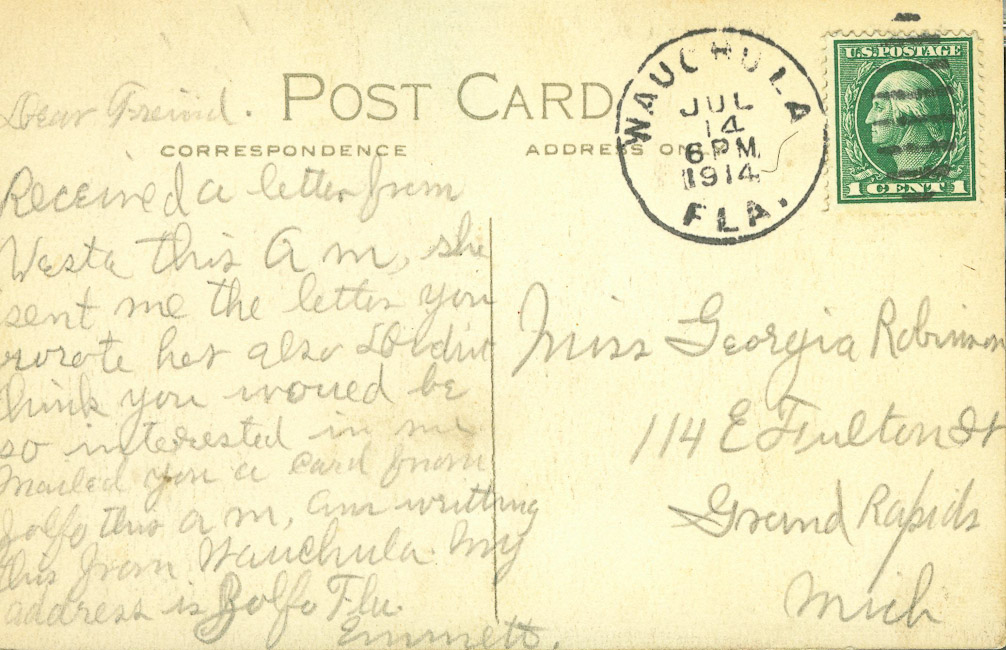 POST CARD
CORRESPONDENCE
ADDRESS ON
WAUCHULA
JUL
14
6 PM
1914
FLA.
U.S. POSTAGE
1 CENT 1
Dear Freind.
Received a letter from
Vesta this A m, she
sent me the letter you
wrote her also I didnt
think you woued be
so interested in me
Mailed you a card from
Zolfo this a m, am writting
this from Wauchula. My
address is Zolfo Fla.
Emmett.
Miss Georgia Robinson
114 E Fulton St
Grand Rapids
Mich